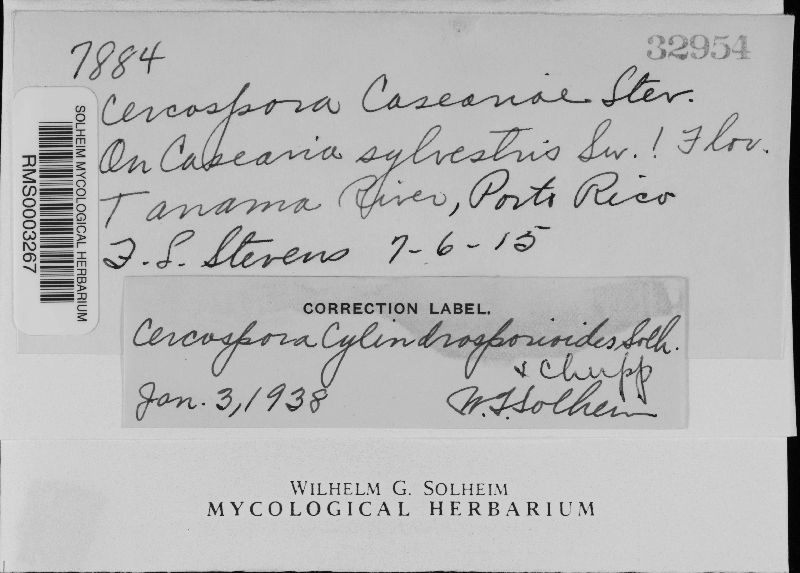 7884
32954
Cercospora Caseariae Stev.
On Casearia sylvestris Sw. ! Flor.
Tanama River, Porto Rico
F. L. Stevens 7-6-15
SOLHEIM MYCOLOGICAL HERBARIUM
RMS0003267
CORRECTION LABEL.
Cercospora Cylindrosporioides Solh.
& Chupp
Jan. 3, 1938 W.G. Solheim
WILHELM G. SOLHEIM
MYCOLOGICAL HERBARIUM